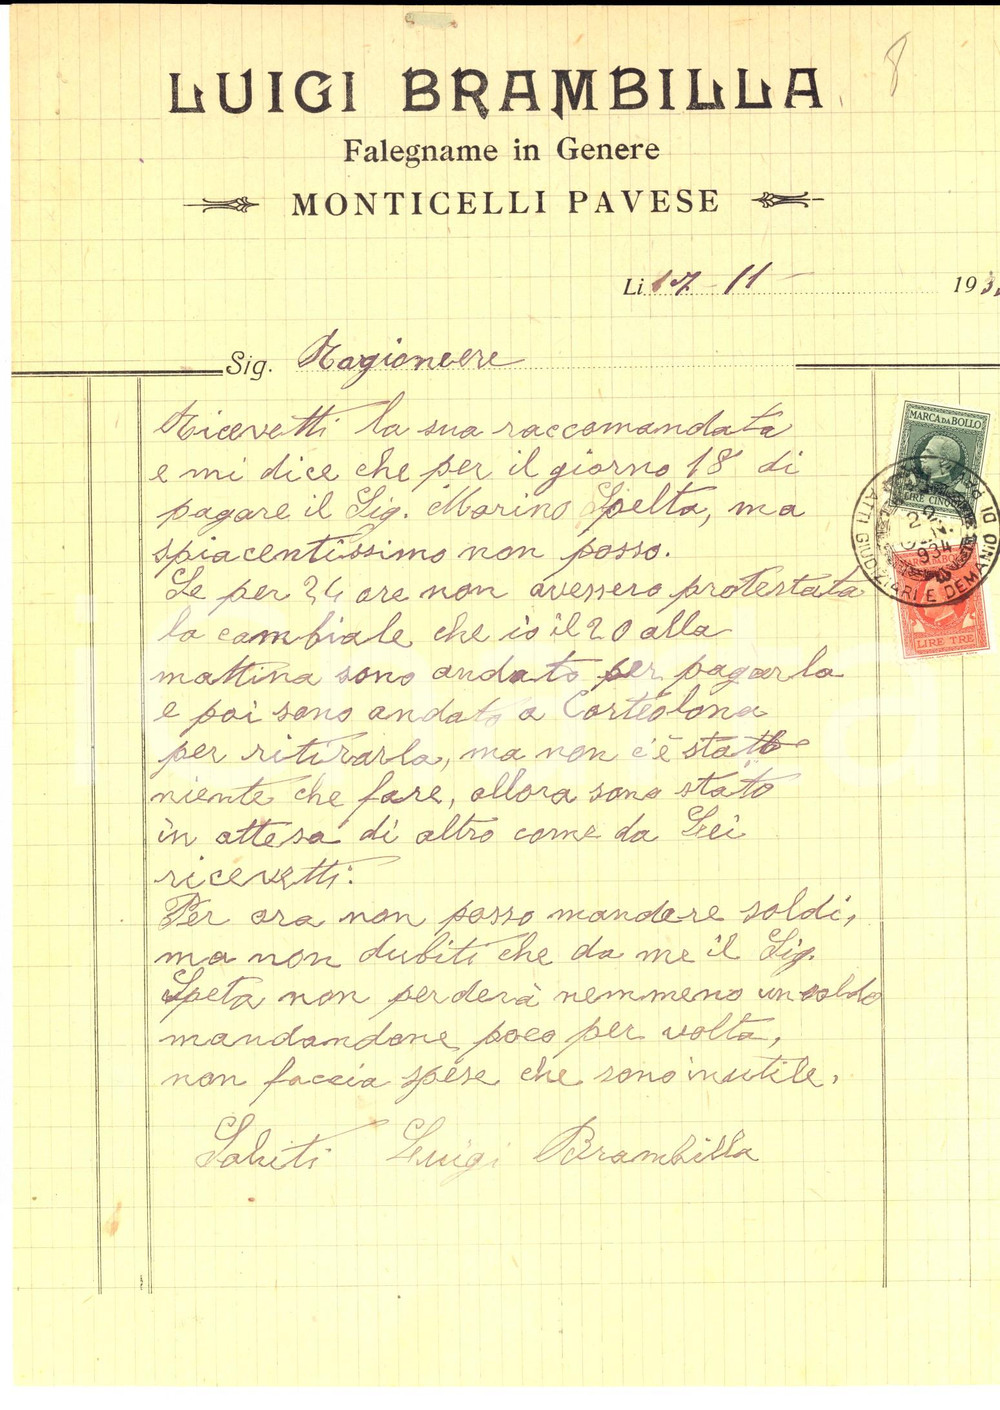 8
LUIGI BRAMBILLA
Falegname in Genere
MONTICELLI PAVESE
Li 17 - 11 - 193
Sig. Ragioniere
Ricevetti la sua raccomandata
e mi dice che per il giorno 18 di
pagare il Sig. Marino Spelta, ma
spiacentissimo non posso.
Se per 24 ore non avessero protestata
la cambiale che io il 20 alla
mattina sono andato per pagarla
e poi sono andato a Corteolona
per ritirarla, ma non c'è stato
niente che fare, allora sono stato
in attesa di altro come da Lei
ricevetti.
Per ora non posso mandare soldi,
ma non dubiti che da me il Sig.
Speta non perderà nemmeno un soldo
mandandone poco per volta,
non faccia spese che sono inutile,
Saluti Luigi Brambilla
MARCA DA BOLLO
LIRE CINQUE
ATTI GIUDIZIARI E DEMANIO DI
934
LIRE TRE